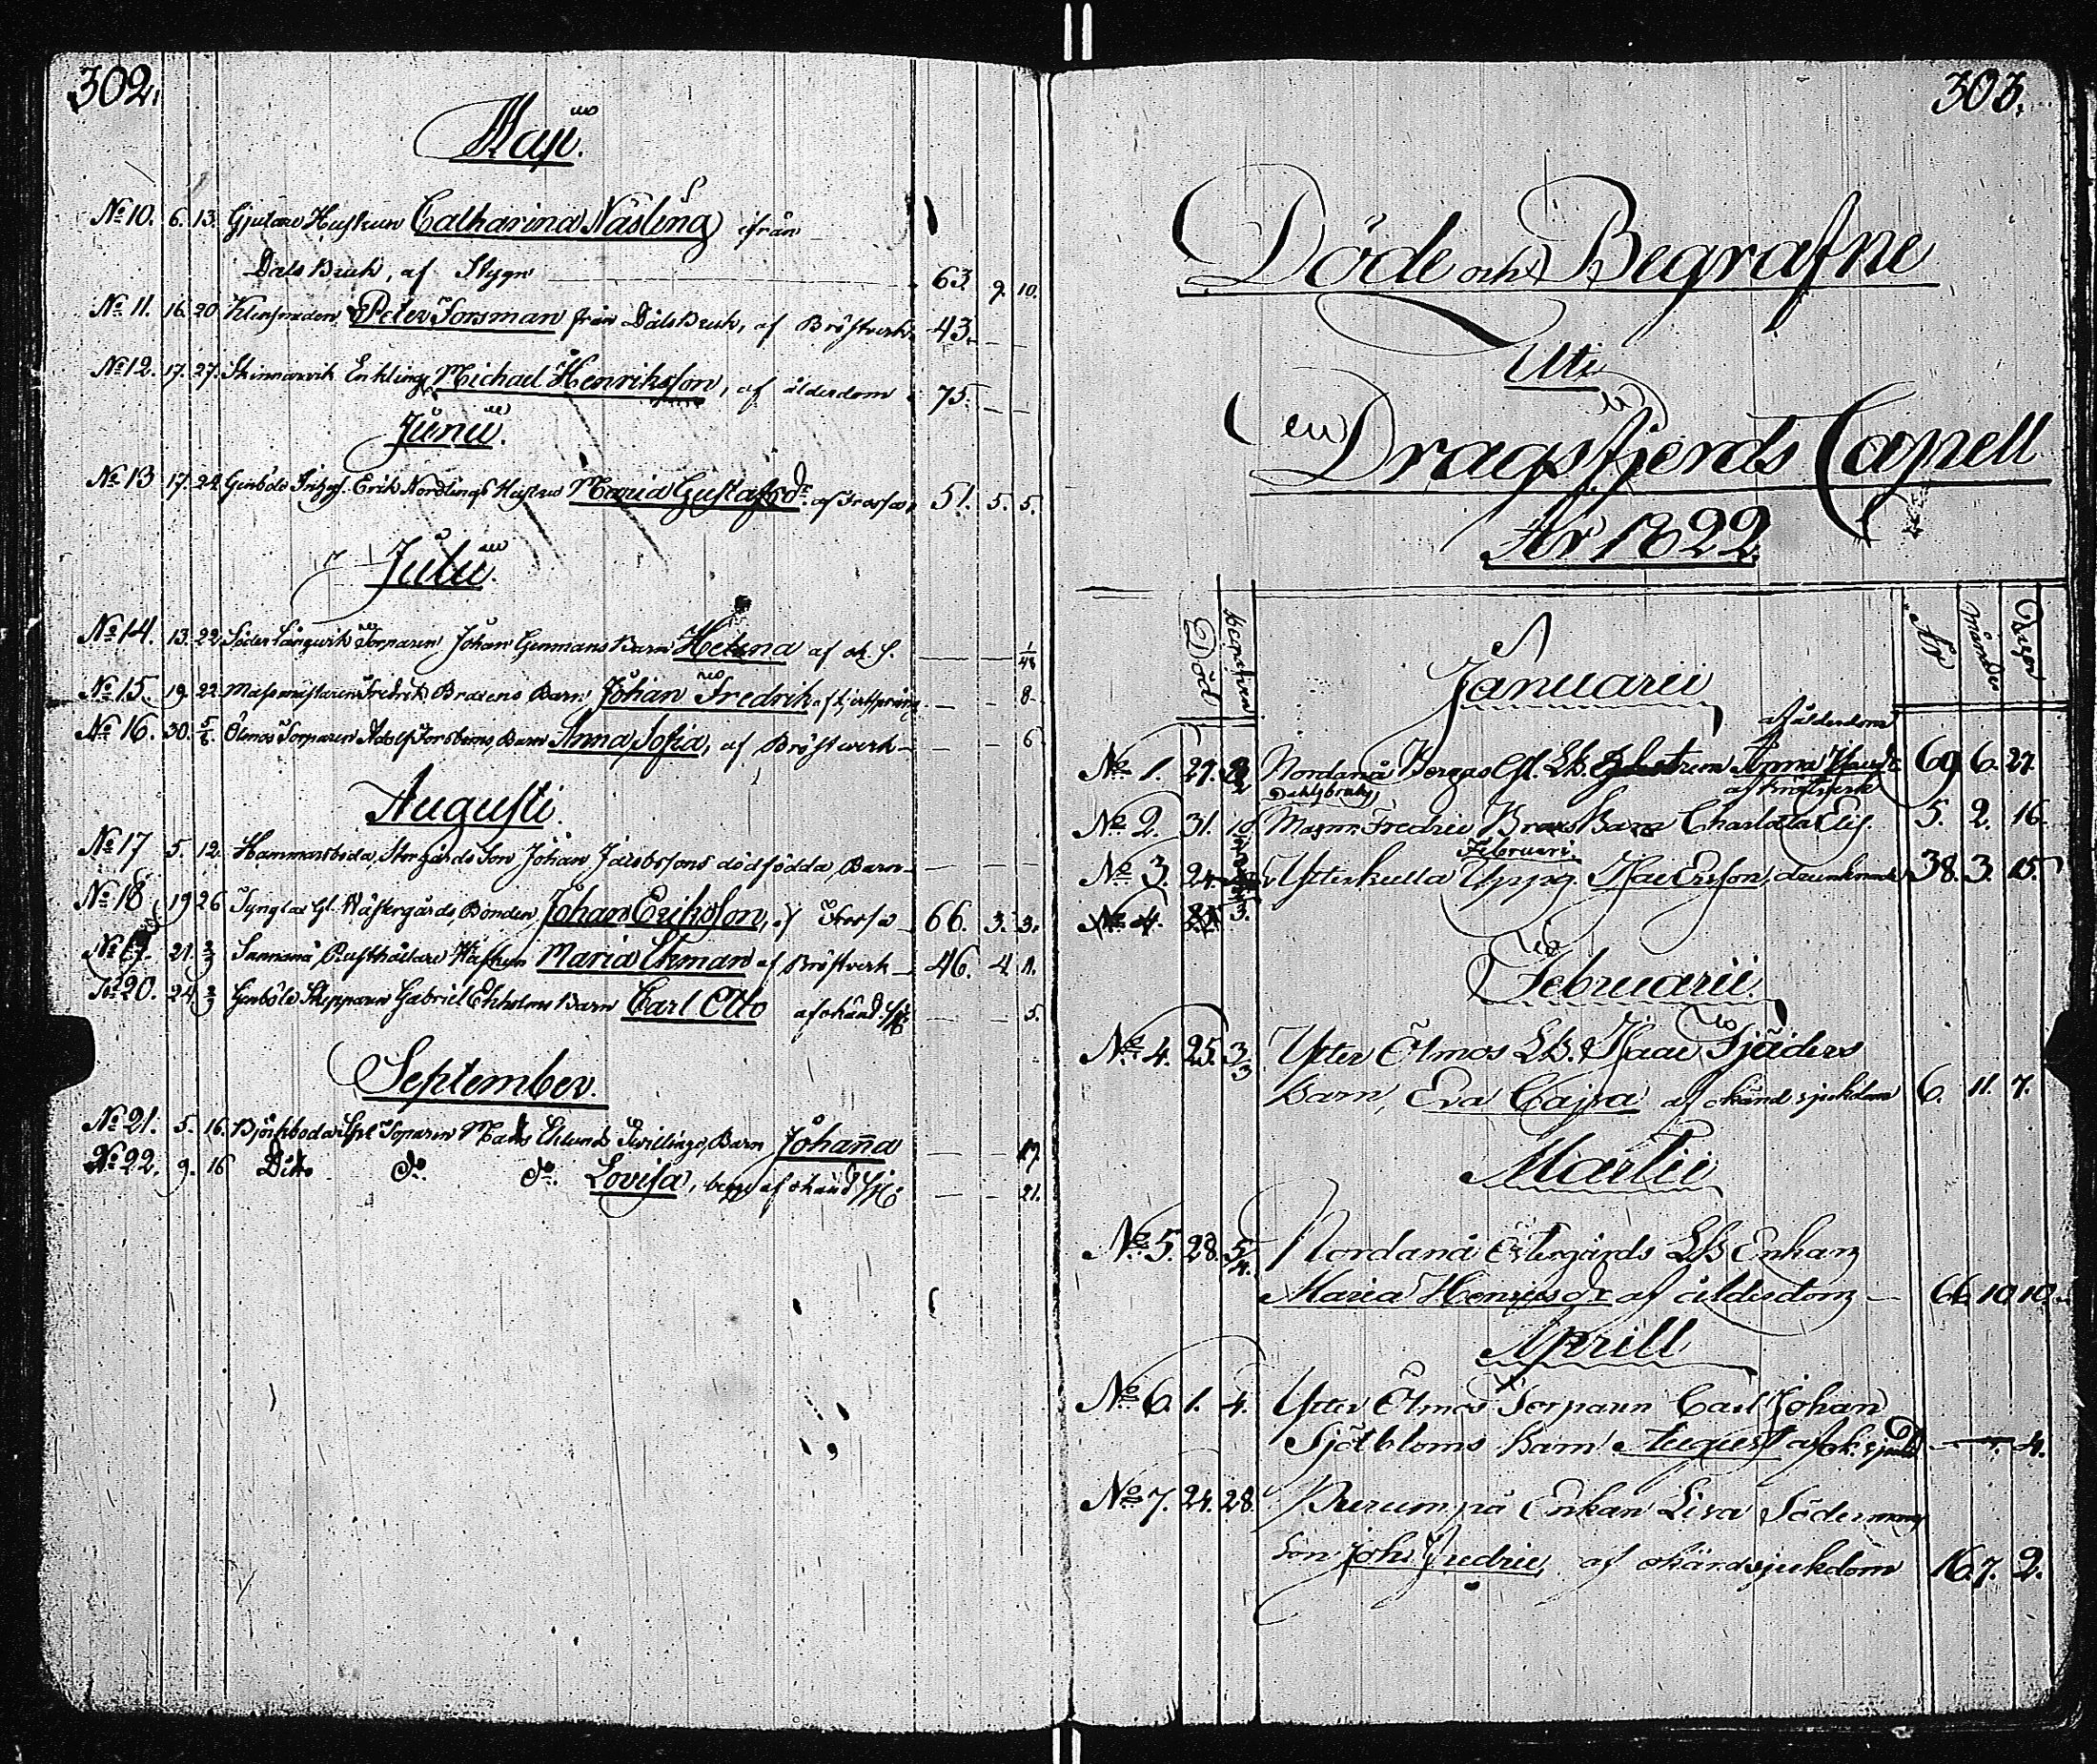 302.
Maji.
No 10. 6. 13. Gjutare Hustrun Catharina Näsling ifrån
Dals Bruk, af Stygn — 63. 9. 10.
No 11. 16. 20. Klensmeden Peter Forsman från Dals Bruk, af Bröstverk 43. – –
No 12. 17. 27. Skinnarvik Enkling Michael Henriksson, af ålderdom 75. – –
Junii.
No 13 17. 24. Genböle Erik Nordlings Hustru Maria Gustafsdr. af Frossa, 51. 5. 5.
Julii.
No 14. 13. 22. Söder Långwik Torparen Johan Genmans Barn Helena af ok. S. — – 1/48
No 15. 19. 22. Masmästaren Fredrik Braxens Barn Johan Fredrik af — – 8.
No 16. 30. 5/8. Ölmos Torparen Adolf Forsbems Barn Anna Sofia, af Bröstwerk – – – 6
Augusti.
No 17 5. 12. Hammarsboda, Storgårds Son Johan Jacobssons dödfödda, Barn – – – –
No 18 19 26 Gl. Wästergårds, Bonden, Johan Eriksson, af Frossa 66. 3. 3.
No 19. 21. 2/9 Sannanå Rusthållare Hustrun Maria Ekman af Bröstverk – 46. 4. 11.
No 20. 24 2/9 Genböle Skepparen Gabriel Ekholms Barn Carl Otto af okänd Sjk: — – 5.
September.
No 21. 5. 16. Björkboda Torparen Mats Eklunds Twillings, Barn Johanna — – 17.
No 22. 9. 16 Dito Do. Do. Lovisa, begge af okänd Sjk: — – 21.
303.
Döde och Begrafne
Uti
Dragsfjerds Capell
År 1822.
Död
Begrafven
År
månader
Dagar
Januarii
af ålderdom
No 1. 27. Nordanå Bergas Gl. LB. Anna 69 6. 27.
Dahlsbruk, af Bröstwerk
No 2. 31. Masm. Fredric Brax Barn Charlotta Elis. 5. 2. 16.
Februari.
No 3. 24. Ytterkulla Isac Ersson, drunknade 38. 3. 15.
No 4.
Februarii.
No 4. 25. 3/3 Ytter Ölmos LB. Isac Sjöders
Barn, Eva Cajsa af okänd sjukdom 6. 11. 7.
Martii
No 5. 28. 5/4. Nordanå Östergårds LB Enkan
Maria Henricsdr af ålderdom – 66 10 10.
Aprill
No 6. 1. 4. Ytter Ölmos Torparen Carl Johan
Sjöbloms Barn August af ok. sjukd — – 4.
No 7. 24. 28. Enkan Lisa Södermans
Son Joh. Fredric, af okänd sjukdom 16. 7. 2.